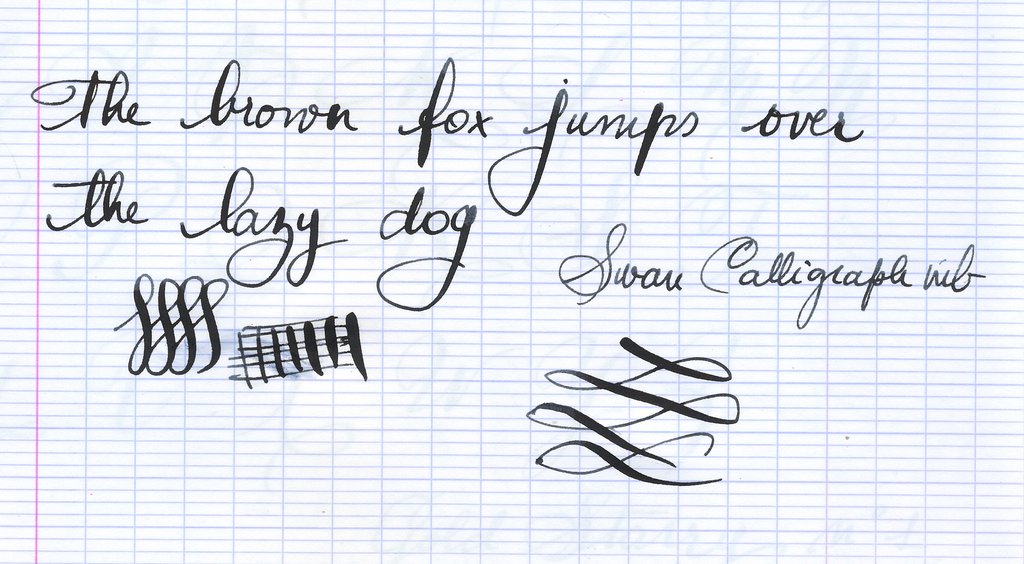 The brown fox jumps over
the lazy dog
Swan Calligraph nib